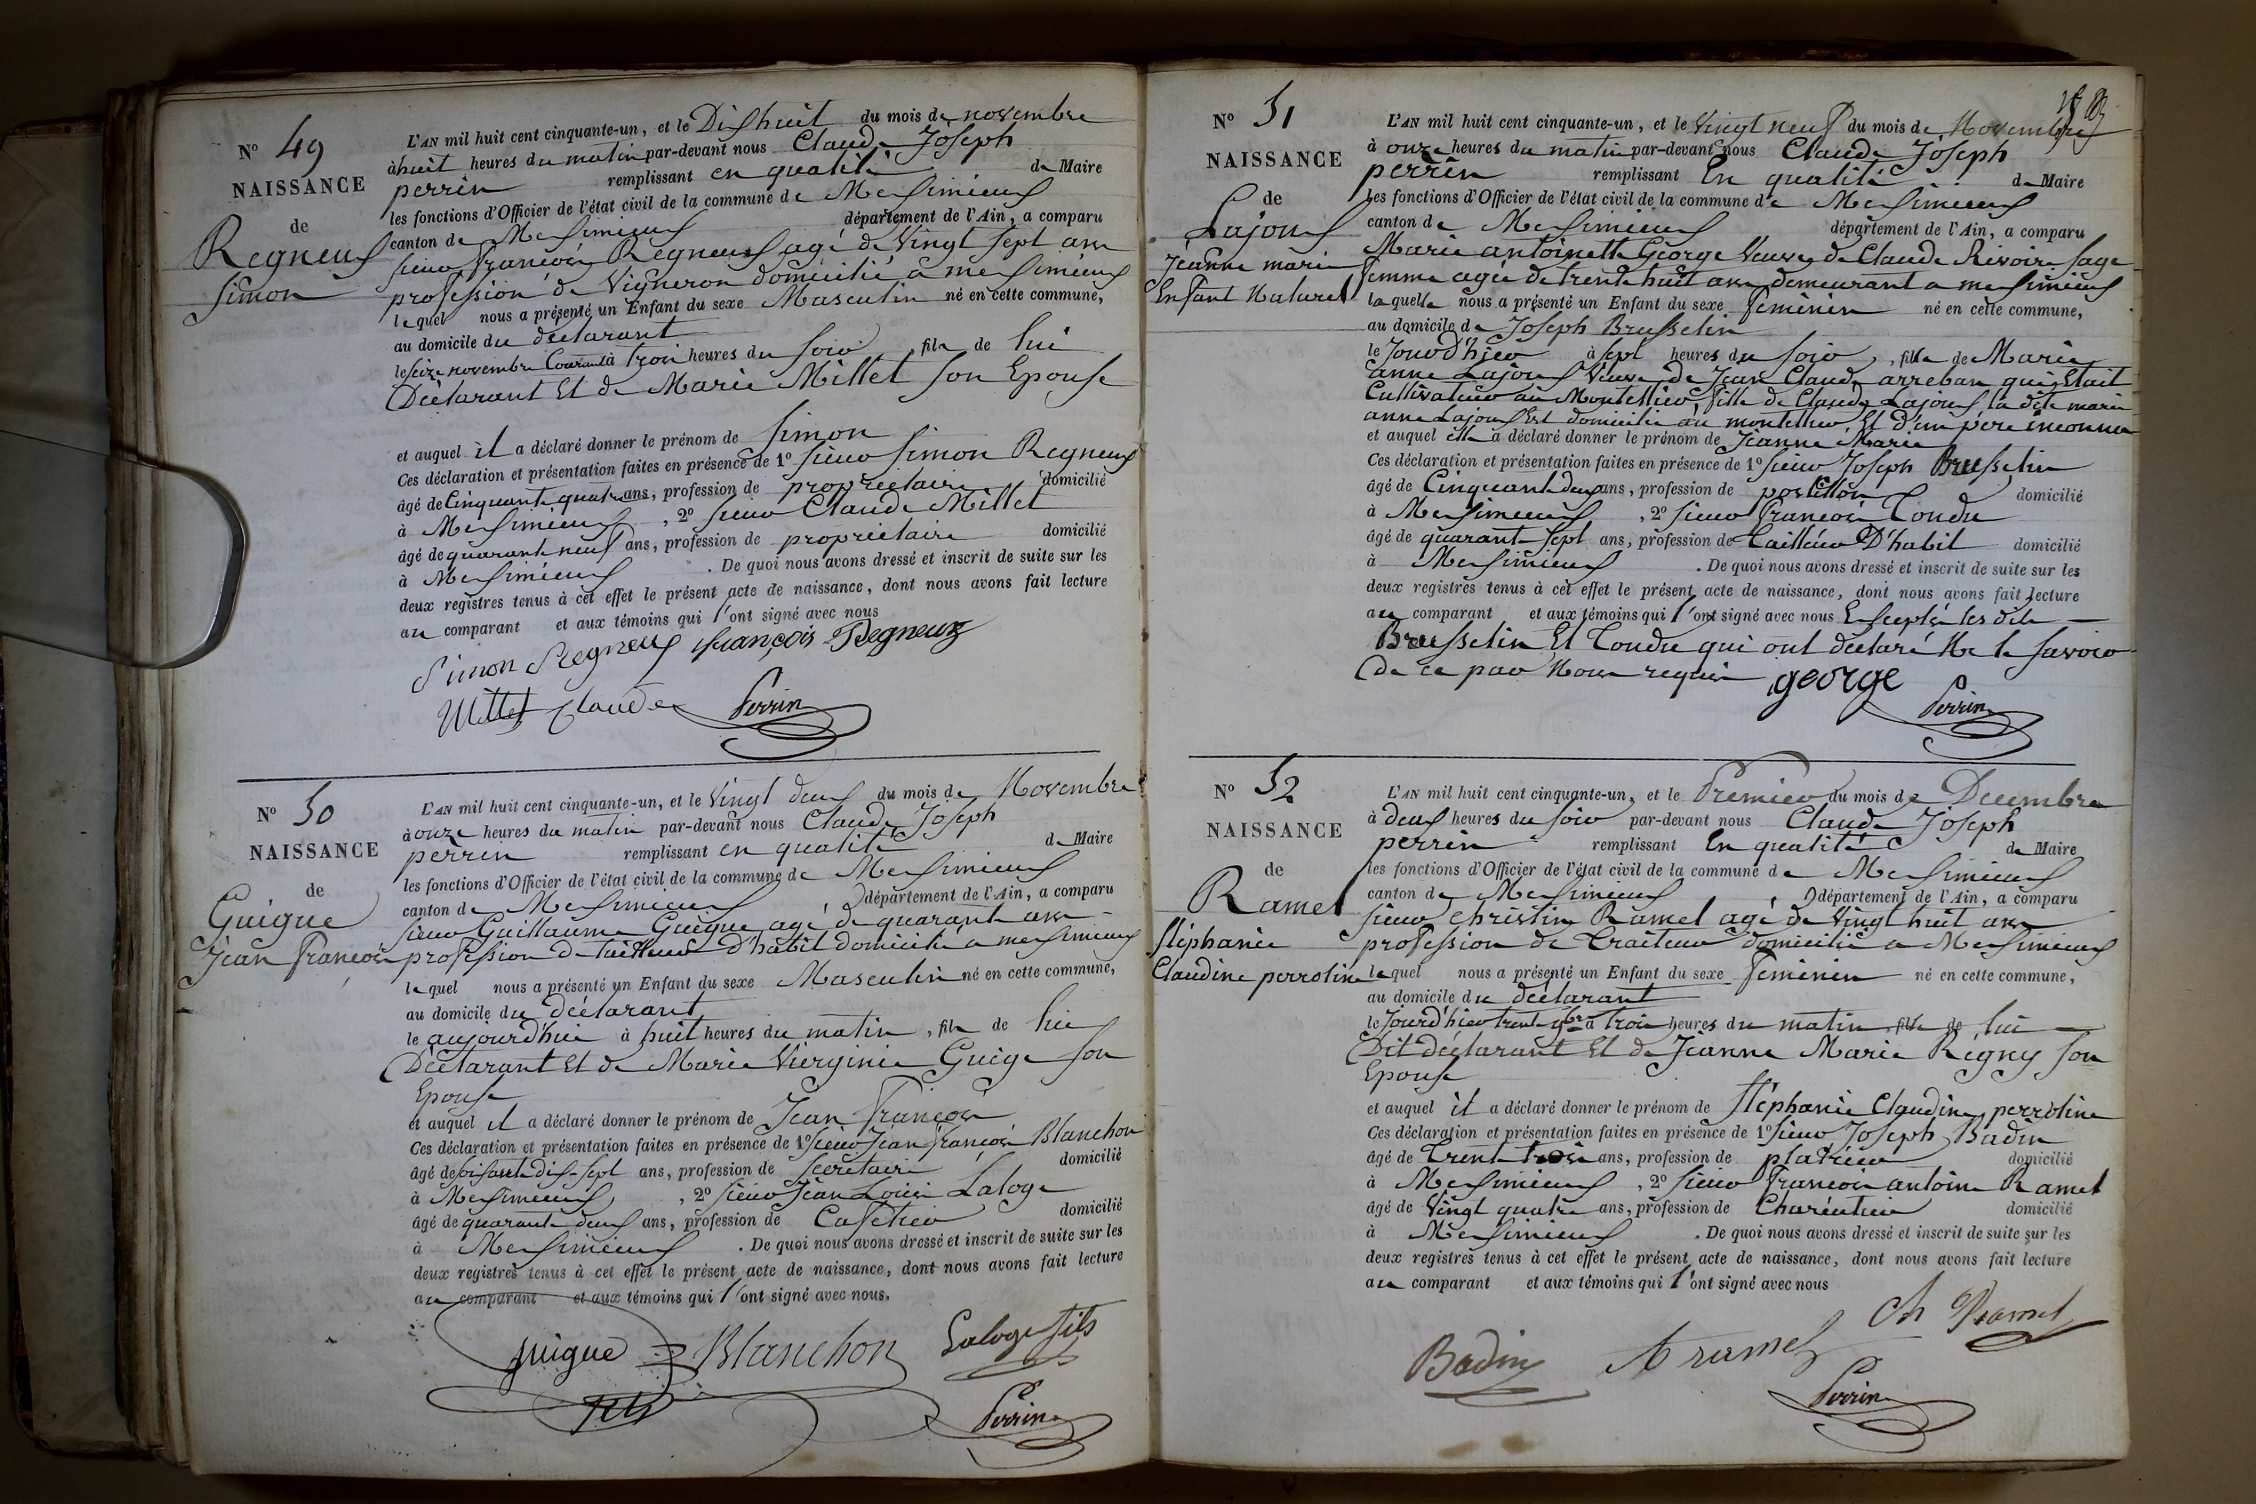 N° 49
NAISSANCE
de
Regneux
Simon
L'AN mil huit cent cinquante-un, et le Dixhuit du mois de novembre
à huit heures du matin par-devant nous Claude Joseph
perrin remplissant en qualité de Maire
les fonctions d'Officier de l'état civil de la commune de Meximieux
canton de Meximieux département de l'Ain, a comparu
sieur François Regneux agé de Vingt sept ans
profession de Vigneron domicilié a meximieux
lequel nous a présenté un Enfant du sexe Masculin né en cette commune,
au domicile du déclarant
le seize novembre Courant à trois heures du soir, fils de lui
Déclarant Et de Marie Millet son Epouse
et auquel il a déclaré donner le prénom de Simon
Ces déclaration et présentation faites en présence de 1° sieur Simon Regneux
âgé de Cinquante quatre ans, profession de propriétaire domicilié
à Meximieux, 2° sieur Claude Millet
âgé de quarante neuf ans, profession de propriétaire domicilié
à Meximieux. De quoi nous avons dressé et inscrit de suite sur les
deux registres tenus à cet effet le présent acte de naissance, dont nous avons fait lecture
au comparant et aux témoins qui l'ont signé avec nous
Simon Regneux françois Regneux
Millet Claude Perrin
N° 50
NAISSANCE
de
Guigue
Jean François
L'AN mil huit cent cinquante-un, et le Vingt deux du mois de Novembre
à onze heures du matin par-devant nous Claude Joseph
perrin remplissant en qualité de Maire
les fonctions d'Officier de l'état civil de la commune de Meximieux
canton de Meximieux département de l'Ain, a comparu
sieur Guillaume Guigue agé de quarante ans
profession de tailleur d'habit domicilié a meximieux
lequel nous a présenté un Enfant du sexe Masculin né en cette commune,
au domicile du déclarant
le aujourd'hui à huit heures du matin, fils de lui
Déclarant Et de Marie Vierginie Guige son
Epouse
et auquel il a déclaré donner le prénom de Jean François
Ces déclaration et présentation faites en présence de 1° sieur Jean François Blanchon
âgé de soixante dix sept ans, profession de secrétaire domicilié
à Meximieux, 2° sieur Jean Louis Laloge
âgé de quarante deux ans, profession de Cafetier domicilié
à Meximieux. De quoi nous avons dressé et inscrit de suite sur les
deux registres tenus à cet effet le présent acte de naissance, dont nous avons fait lecture
au comparant et aux témoins qui l'ont signé avec nous.
guigue Blanchon Laloge fils
Perrin
N° 51
NAISSANCE
de
Lajoux
Jeanne marie
Enfant Naturel
L'AN mil huit cent cinquante-un, et le Vingt neuf du mois de Novembre
à onze heures du matin par-devant nous Claude Joseph
perrin remplissant En qualité de Maire
les fonctions d'Officier de l'état civil de la commune de Meximieux
canton de Meximieux département de l'Ain, a comparu
Marie antoinette George Veuve de Claude Rivoire sage
femme agée de trente huit ans demeurant a meximieux
laquelle nous a présenté un Enfant du sexe feminin né en cette commune,
au domicile de Joseph Brusselin
le Jour d'hier à sept heures du soir, fille de Marie
anne Lajoux Veuve de Jean Claude arreban qui Etait
Cultivateur au Montellier, fille de Claude Lajoux la dite marie
anne Lajoux Est domicilié au montellier Et d'un père inconnu
et auquel elle a déclaré donner le prénom de Jeanne Marie
Ces déclaration et présentation faites en présence de 1° sieur Joseph Brusselin
âgé de Cinquante deux ans, profession de postillon domicilié
à Meximieux, 2° sieur François Tondu
âgé de quarante sept ans, profession de Tailleur D'habit domicilié
à Meximieux. De quoi nous avons dressé et inscrit de suite sur les
deux registres tenus à cet effet le présent acte de naissance, dont nous avons fait lecture
au comparant et aux témoins qui l'ont signé avec nous Exceptés les dits
Brusselin Et Tondu qui ont déclaré Ne le savoir
de ce par Nous requis george
Perrin
N° 52
NAISSANCE
de
Ramel
Stéphanie
Claudine perroline
L'AN mil huit cent cinquante-un, et le Premier du mois de Decembre
à deux heures du soir par-devant nous Claude Joseph
perrin remplissant En qualité de Maire
les fonctions d'Officier de l'état civil de la commune de Meximieux
canton de Meximieux département de l'Ain, a comparu
sieur christin Ramel agé de Vingt huit ans
profession de Traiteur domicilié a Meximieux
lequel nous a présenté un Enfant du sexe feminin né en cette commune,
au domicile du déclarant
le Jour d'hier trente 9bre à trois heures du matin, fille de lui
Dit déclarant Et de Jeanne Marie Régny son
Epouse
et auquel il a déclaré donner le prénom de Stéphanie Claudine perroline
Ces déclaration et présentation faites en présence de 1° sieur Joseph Badin
âgé de Trente trois ans, profession de platrier domicilié
à Meximieux, 2° sieur François antoine Ramel
âgé de Vingt quatre ans, profession de Charcutier domicilié
à Meximieux. De quoi nous avons dressé et inscrit de suite sur les
deux registres tenus à cet effet le présent acte de naissance, dont nous avons fait lecture
au comparant et aux témoins qui l'ont signé avec nous
Ch Ramel
Badin A ramel
Perrin